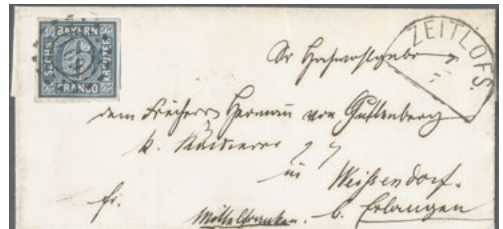 BAYERN
SECHS
KREUZER
FRANCO
ZEITLOFS.
Sr Hochwohlgeboren
dem Freiherrn Hermann von Guttenberg
k. Kämmerer
in Weißendorf.
fr. Mittelfranken. b. Erlangen